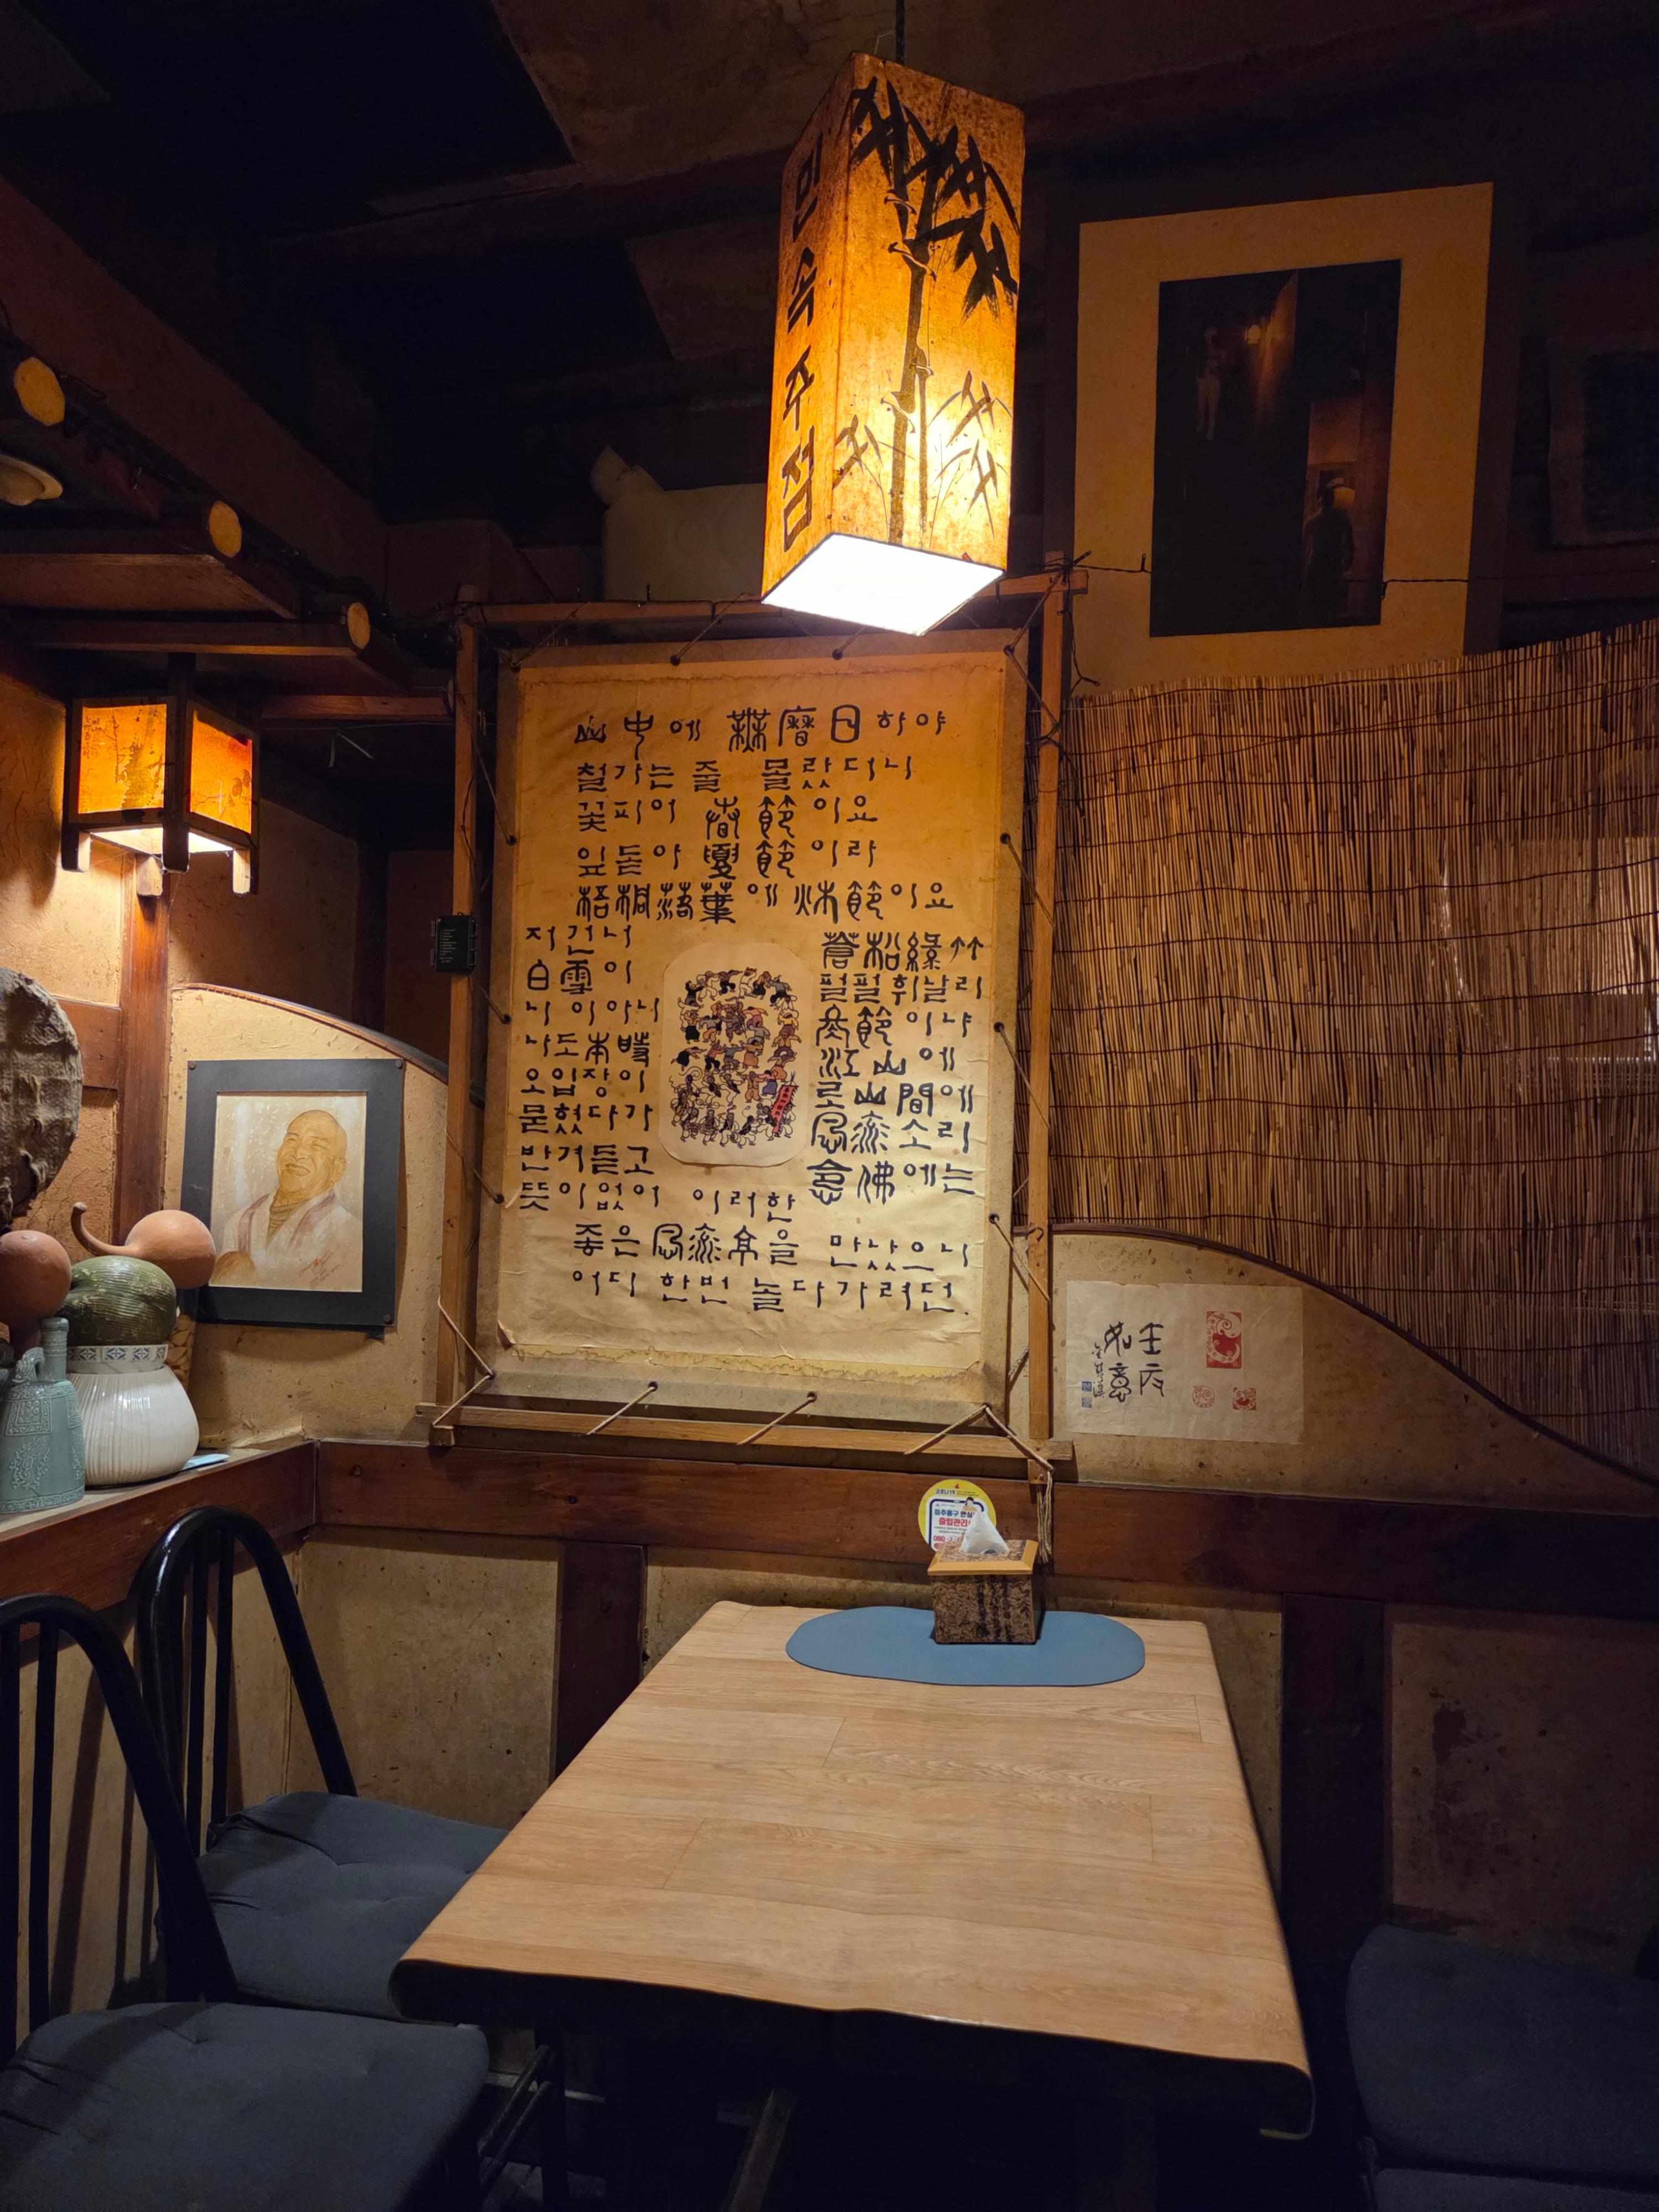 민속주점
山中에 無曆日하야
철가는 줄 몰랐더니
꽃피어 春節이요
잎돋아 夏節이라
梧桐落葉에 秋節이요
저건너 蒼松綠竹
白雪이 펄펄휘날리
니 이아니 冬節이냐
나도本時 江山에
오입장이로 山間에
묻혔다가 風流소리
반겨듣고 念佛에는
뜻이없어 이러한
좋은風流亭을 만났으니
어디 한번 놀다가려던.
壬辰
如意
코로나19
출입관리